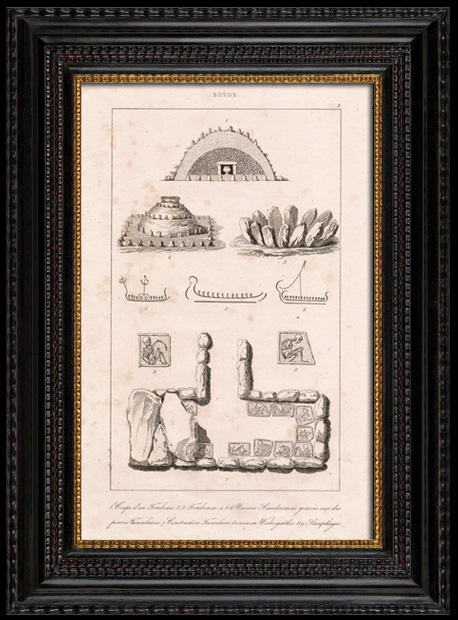 SUÈDE
2
1
2
3
4
5
6
8
9
7
1 Coupe d'un Tombeau. 2.3. Tombeaux. 4.5.6. Navires Scandinaves gravés sur des
pierres Tumulaires. 7 Construction Tumulaire trouvée en Westrogothie. 8.9. Sarcophages.